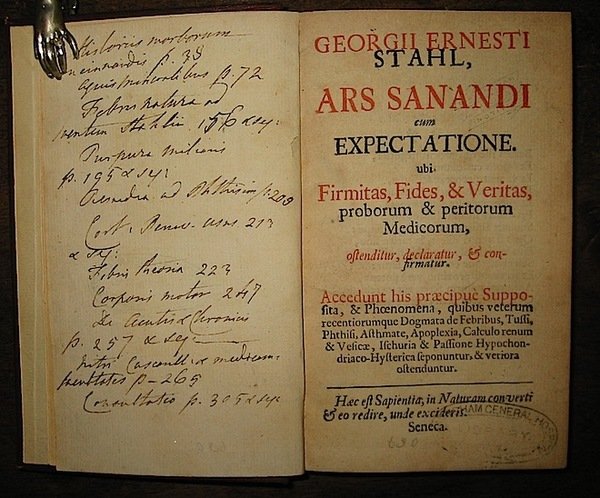 Historiis morborum
p. 38
aquis mineralibus p. 72
Febris natura ad
mentem Stahlii 156 & seq:
Purpura miliaris
p. 195 & seq:
Remedia ad Phthisin p. 200
Cort: Peruv. usus 213
& seq:
Febris theoria 223
Corporis motor 247
De Acutis & Chronicis
p. 257 & seq:
p - 265
Consultatio p. 305 & seq
GEORGII ERNESTI
STAHL,
ARS SANANDI
cum
EXPECTATIONE.
ubi
Firmitas, Fides, & Veritas,
proborum & peritorum
Medicorum,
ostenditur, declaratur, & con-
firmatur.
Accedunt his præcipuè Suppo-
sita, & Phœnomena, quibus veterum
recentiorumque Dogmata de Febribus, Tussi,
Phthisi, Asthmate, Apoplexia, Calculo renum
& Vesicæ, Ischuria & Passione Hypochon-
driaco-Hysterica seponuntur, & veriora
ostenduntur.
Hæc est Sapientia, in Naturam converti
& eo redire, unde exciderit.
Seneca.
HAM GENERAL HO